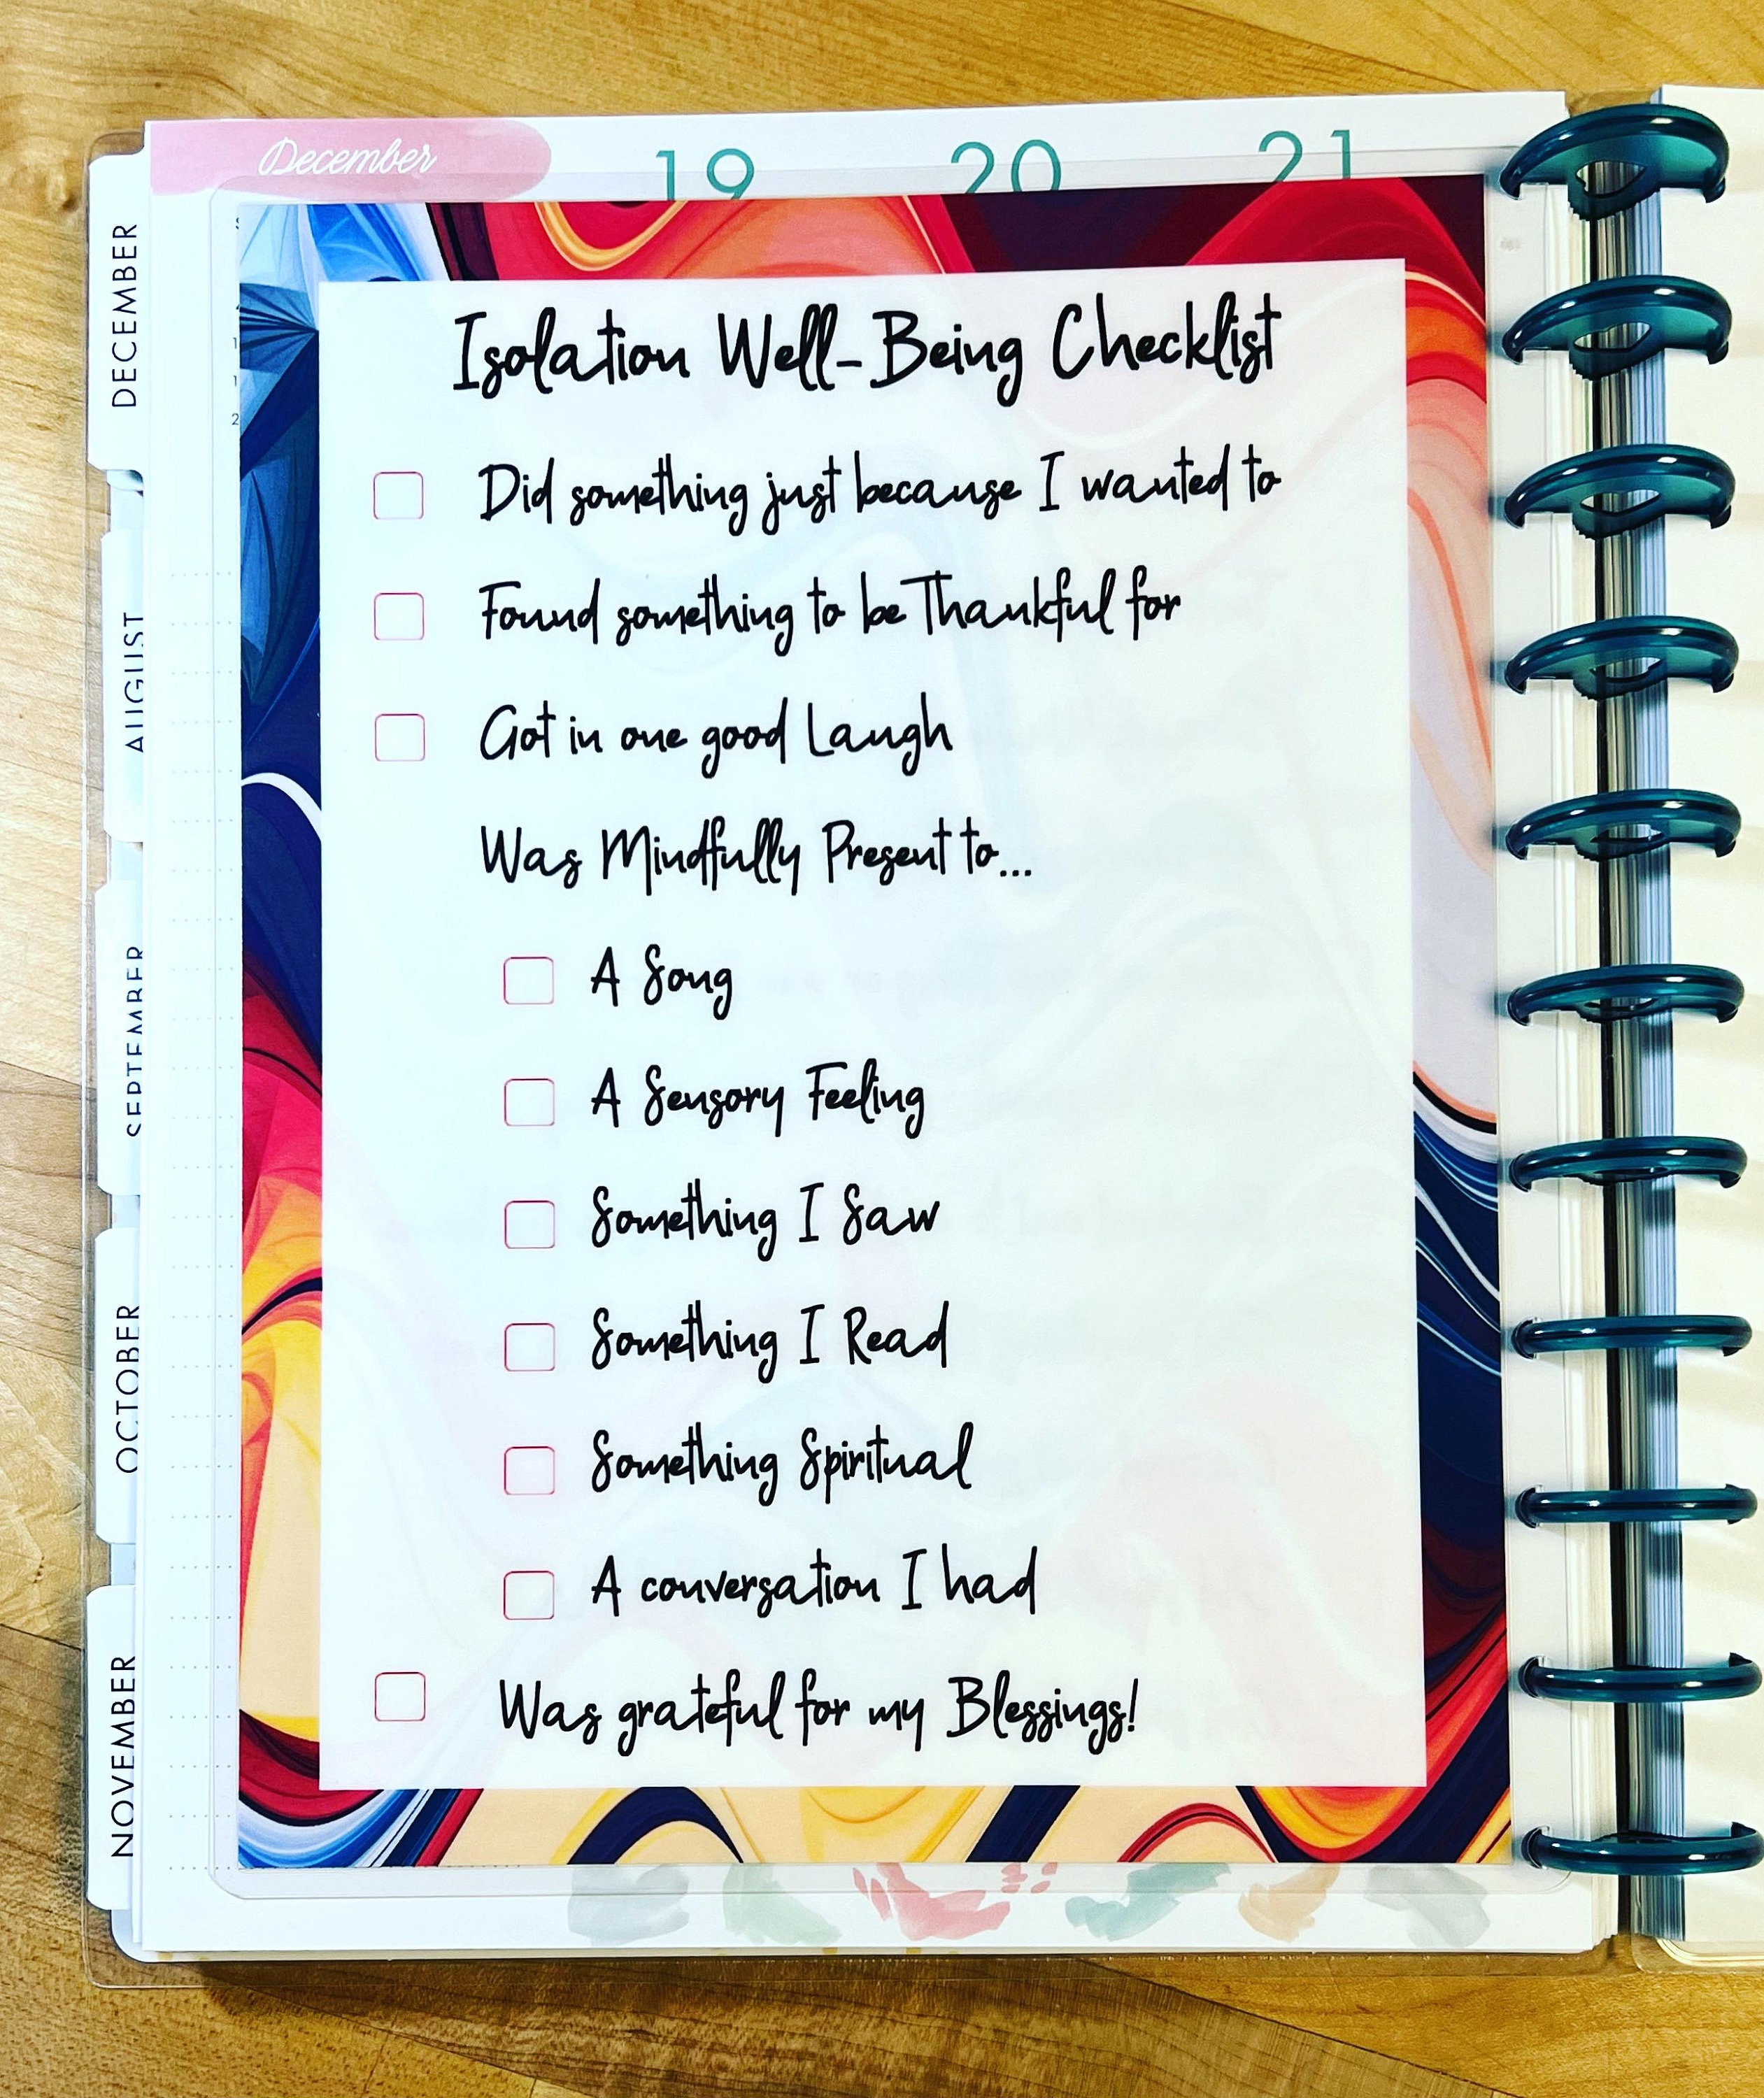 December
19 20 21
DECEMBER
AUGUST
SEPTEMBER
OCTOBER
NOVEMBER
Isolation Well-Being Checklist
Did something just because I wanted to
Found something to be Thankful for
Got in one good Laugh
Was Mindfully Present to...
A Song
A Sensory Feeling
Something I Saw
Something I Read
Something Spiritual
A conversation I had
Was grateful for my Blessings!